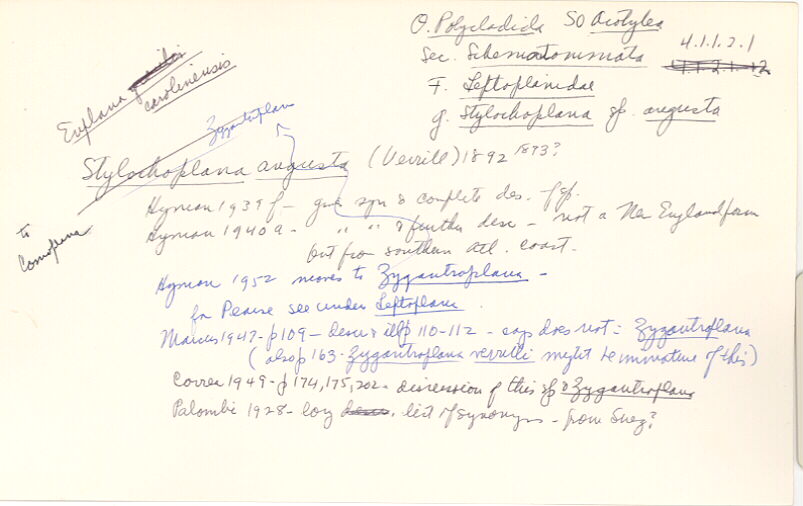 O. Polycladida SO Acotylea
Sec. Schematommata 4.1.1.2.1
F. Leptoplanidae
g. Stylochoplana sp. angusta
Euplana gracilis
carolinensis
Zygantroplana
Stylochoplana angusta (Verrill) 1892 1893?
to
Comoplana
Hyman 1939 f - gives syn & complete des. of sp.
Hyman 1940 a - " " & further desc - not a New England form
but from southern Atl. coast.
Hyman 1952 moves to Zygantroplana -
for Pearse see under Leptoplana.
Marcus 1947 - p 109 - descr & ill p 110-112 - says does not = Zygantroplana
(also p 163 - Zygantroplana verrilli might be immature of this)
Correa 1949 - p 174, 175, 202 - discussion of this sp & Zygantroplana
Palombi 1928 - long desc. list of synonyms - from Suez?